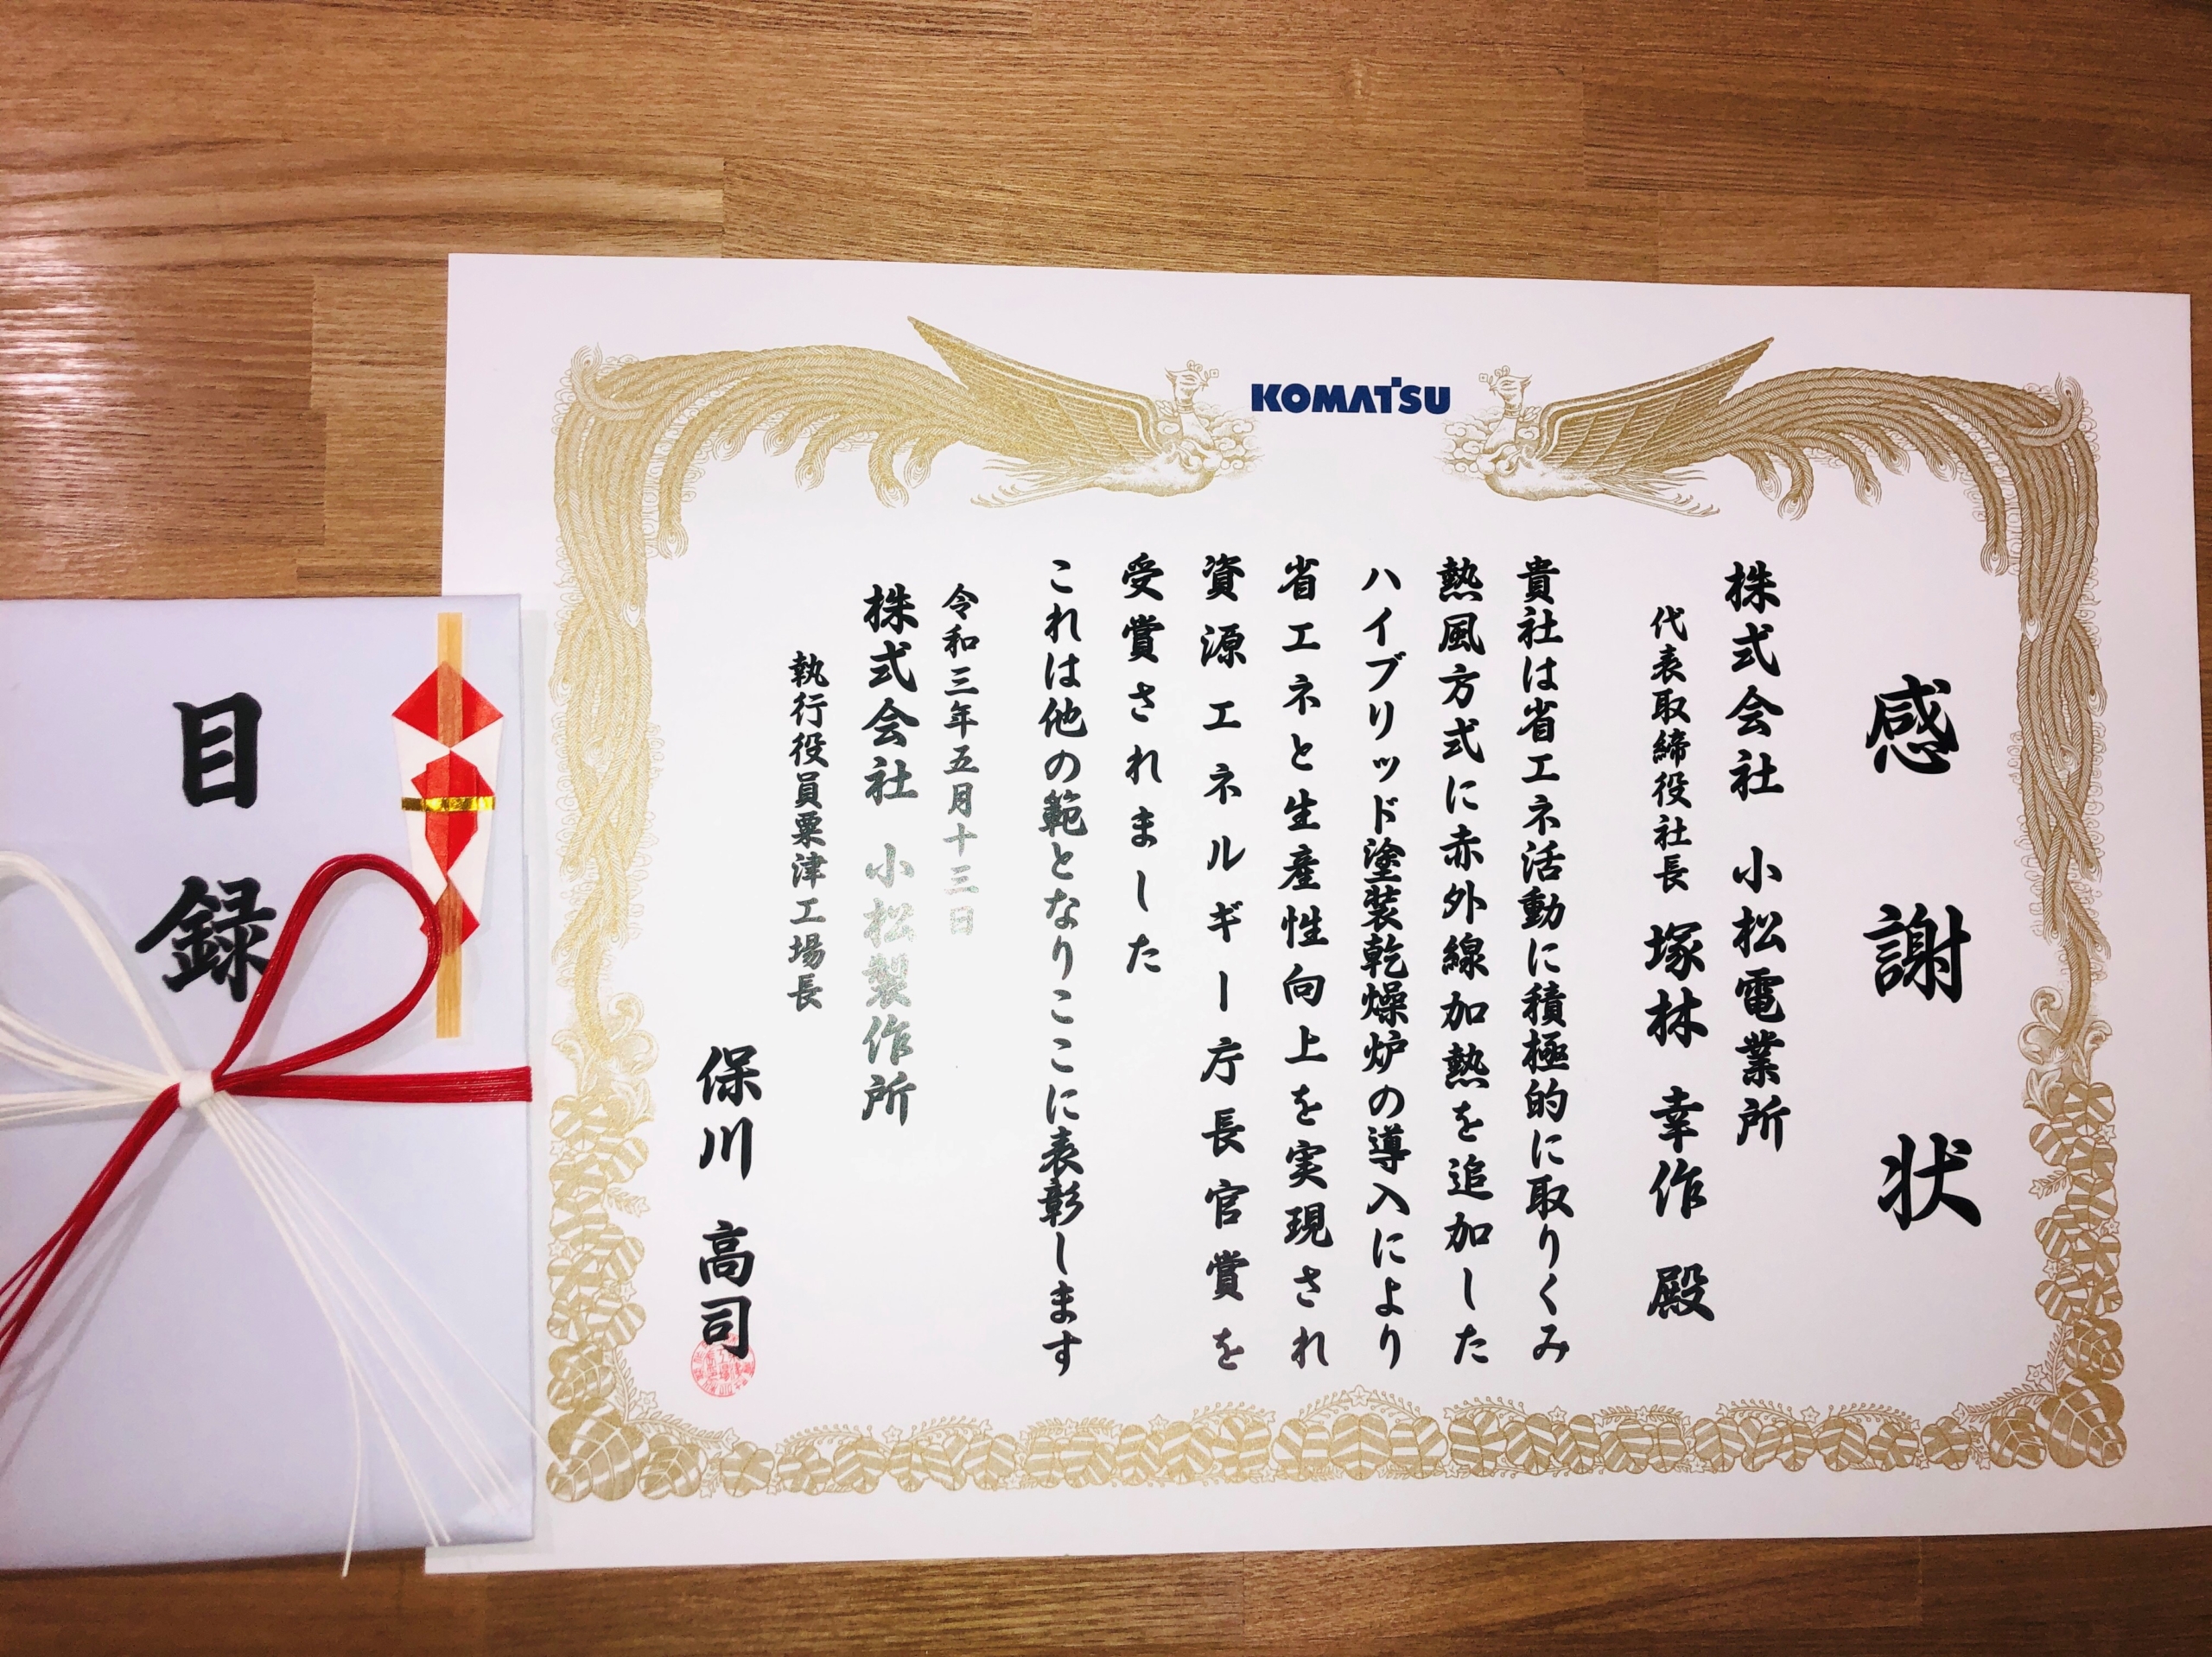 KOMATSU
感謝状
株式会社 小松電業所
代表取締役社長 塚林 幸作 殿
貴社は省エネ活動に積極的に取りくみ
熱風方式に赤外線加熱を追加した
ハイブリッド塗装乾燥炉の導入により
省エネと生産性向上を実現され
資源エネルギー庁長官賞を
受賞されました
これは他の範となりここに表彰します
令和三年五月十三日
株式会社 小松製作所
執行役員粟津工場長
保川 高司
目録